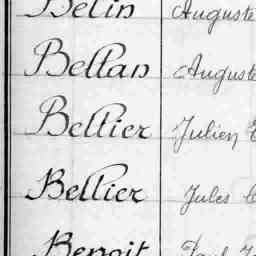 Belin Auguste
Bellan Auguste
Bellier Julien
Bellier Jules
Benoit Paul